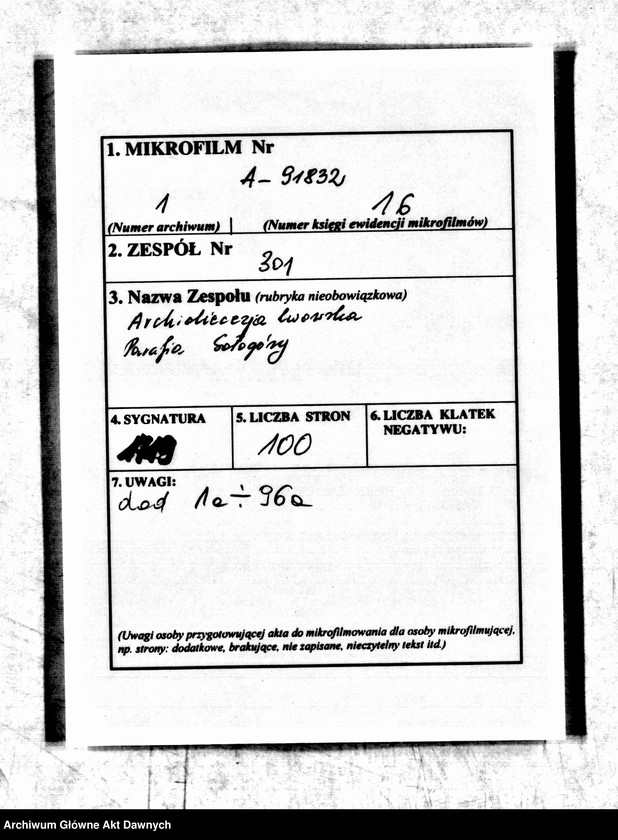 1. MIKROFILM Nr
A-91832
1 16
(Numer archiwum) (Numer księgi ewidencji mikrofilmów)
2. ZESPÓŁ Nr
301
3. Nazwa Zespołu (rubryka nieobowiązkowa)
Archidiecezja lwowska
Parafia Gołogóry
4. SYGNATURA 5. LICZBA STRON 6. LICZBA KLATEK
NEGATYWU:
100
7. UWAGI:
dod 1a÷96a
(Uwagi osoby przygotowującej akta do mikrofilmowania dla osoby mikrofilmującej,
np. strony: dodatkowe, brakujące, nie zapisane, nieczytelny tekst itd.)
Archiwum Główne Akt Dawnych